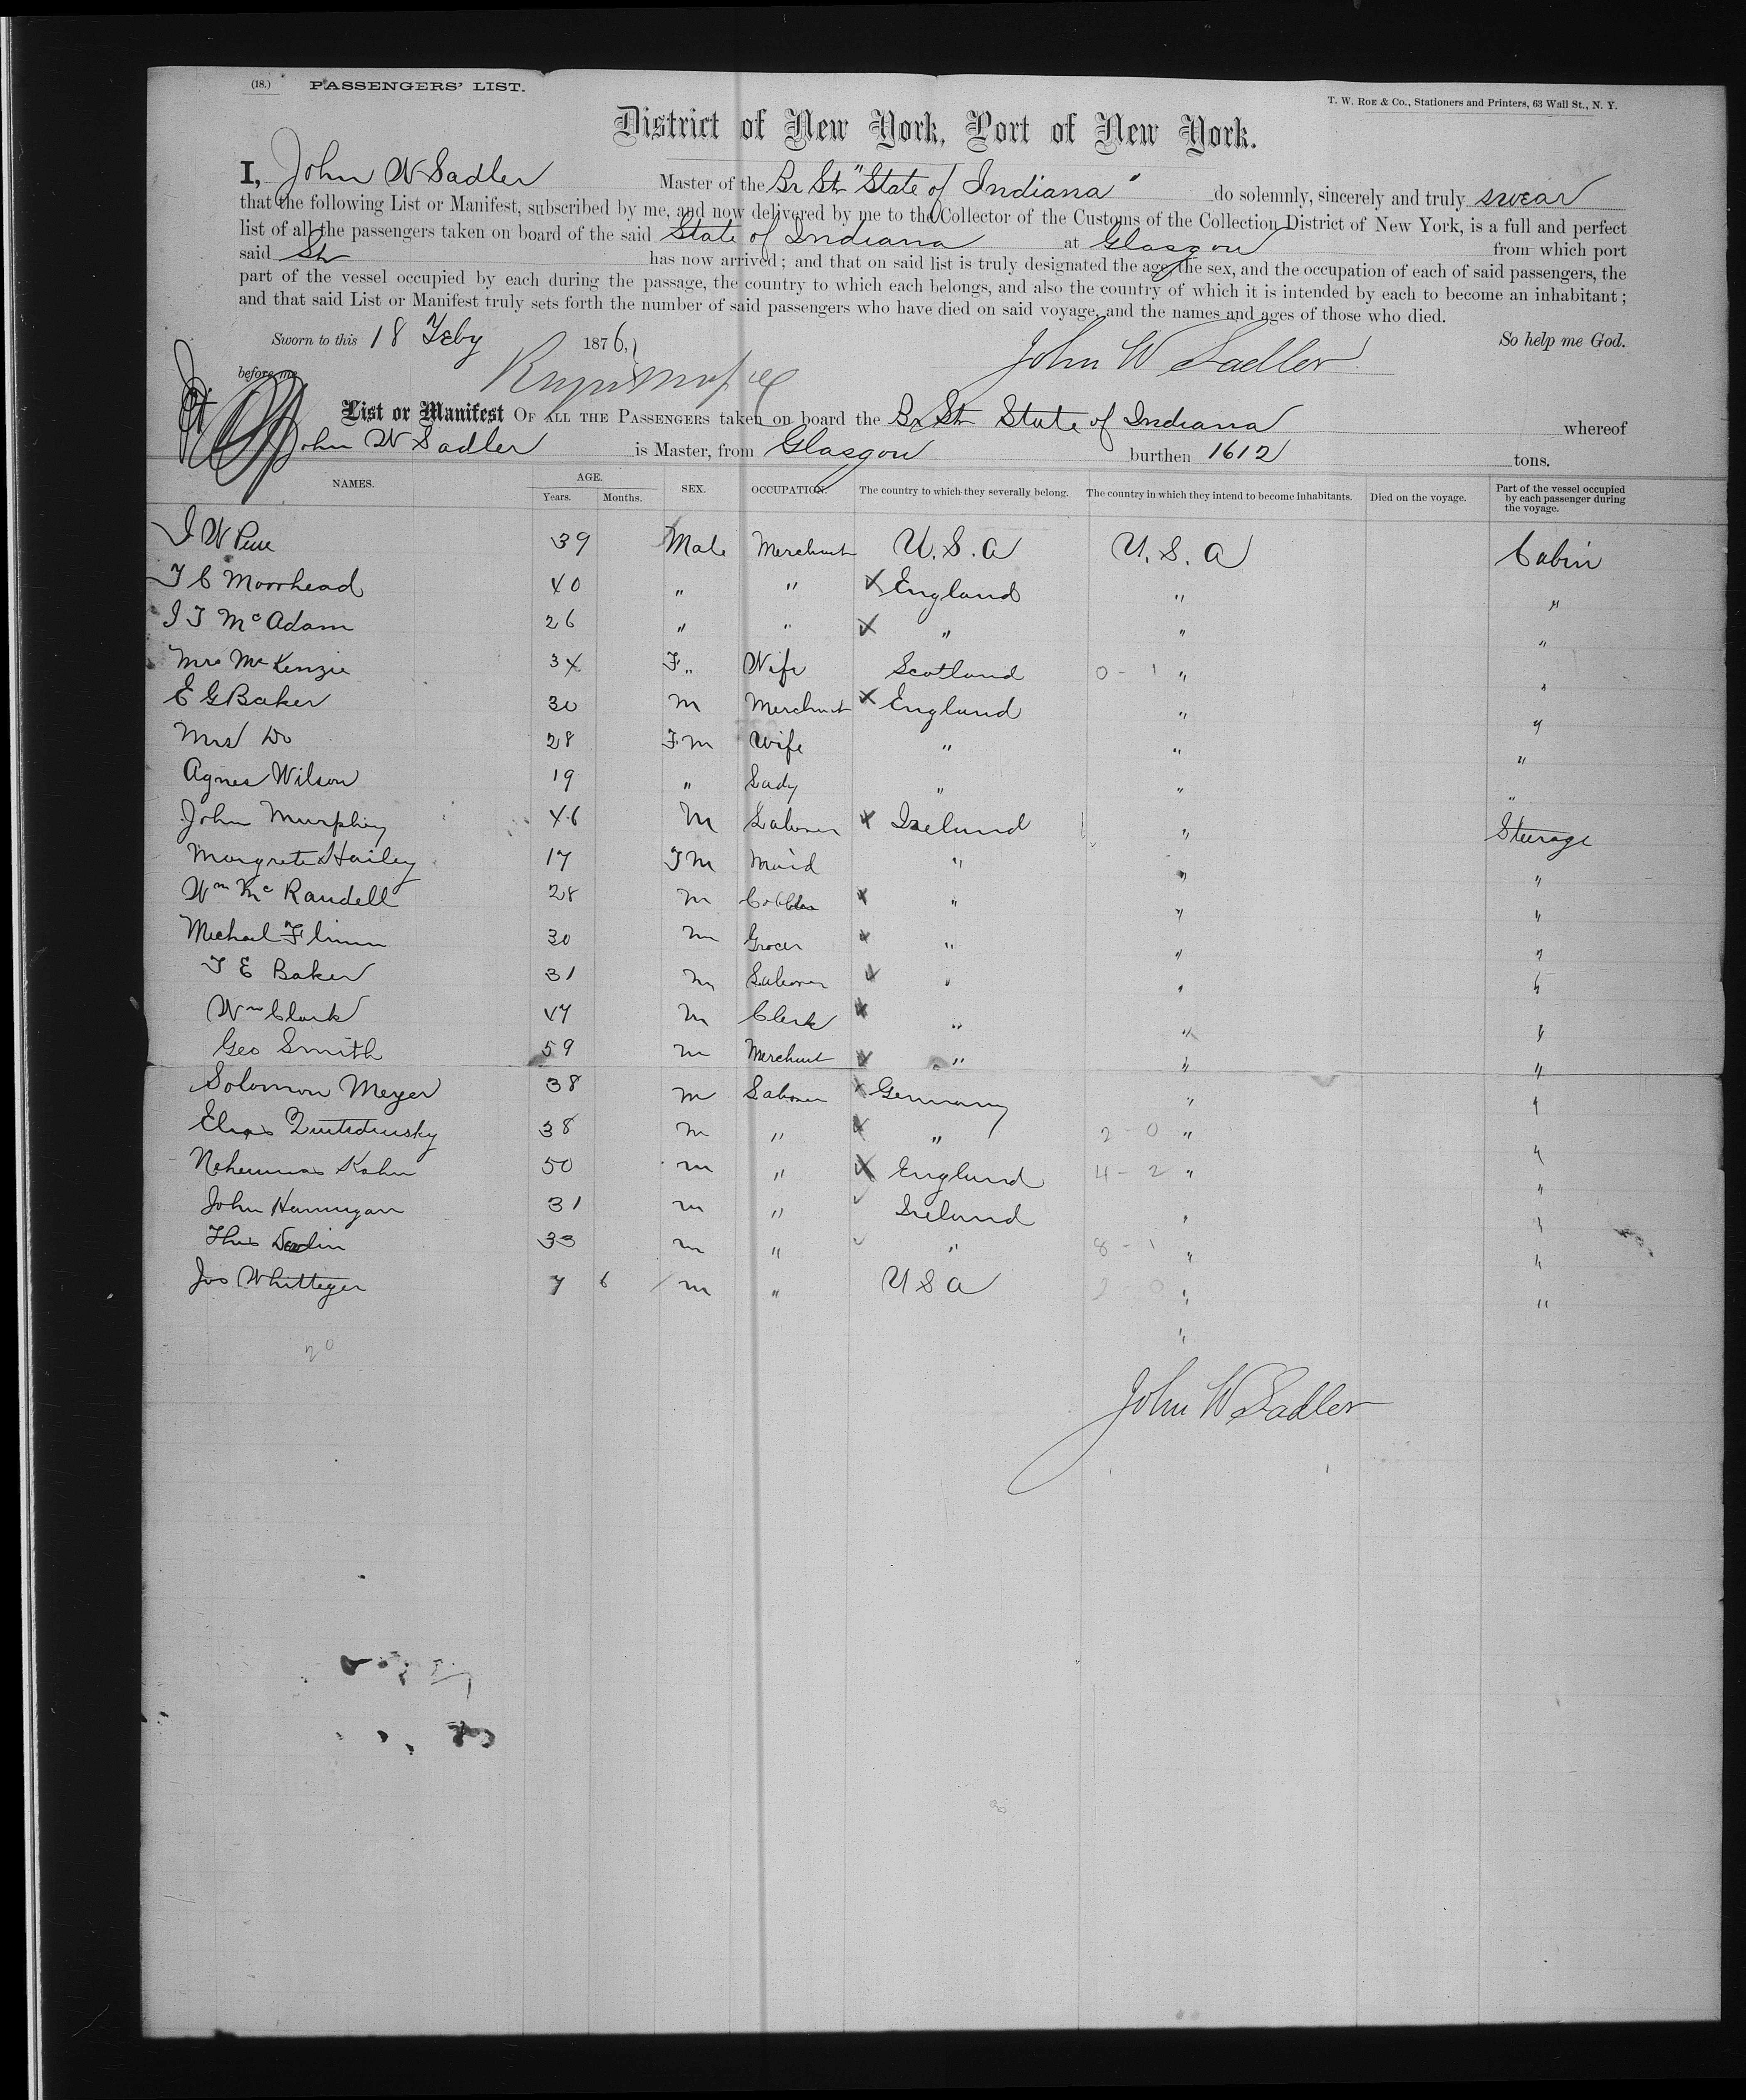 (18.) PASSENGERS' LIST.
T. W. ROE & CO., Stationers and Printers, 63 Wall St., N. Y.
District of New York, Port of New York.
I, John W Sadler Master of the Br Str "State of Indiana" do solemnly, sincerely and truly swear
that the following List or Manifest, subscribed by me, and now delivered by me to the Collector of the Customs of the Collection District of New York, is a full and perfect
list of all the passengers taken on board of the said State of Indiana at Glasgow from which port
said Str has now arrived; and that on said list is truly designated the age, the sex, and the occupation of each of said passengers, the
part of the vessel occupied by each during the passage, the country to which each belongs, and also the country of which it is intended by each to become an inhabitant;
and that said List or Manifest truly sets forth the number of said passengers who have died on said voyage, and the names and ages of those who died.
Sworn to this 18 Feby 1876, So help me God.
before me John W Sadler
List or Manifest OF ALL THE PASSENGERS taken on board the Br Str State of Indiana whereof
John W Sadler is Master, from Glasgow burthen 1612 tons.
NAMES. AGE. Years. Months. SEX. OCCUPATION. The country to which they severally belong. The country in which they intend to become inhabitants. Died on the voyage. Part of the vessel occupied by each passenger during the voyage.
39 Male Merchant U.S.A U.S.A Cabin
T C Moorhead 40 " " England " "
J T McAdam 26 " " " " "
Mrs McKenzie 34 F " Wife Scotland 0 - 1 " "
E G Baker 30 m Merchant England " "
Mrs Do 28 Fm Wife " " "
Agnes Wilson 19 " Lady " " "
John Murphy 46 M Laborer Ireland " Steerage
Margrete Hailey 17 Fm Maid " " "
Wm Mc Randell 28 m " " "
Michael Flinn 30 m Grocer " " "
T E Baker 31 m Laborer " " "
Wm Clark 47 m Clerk " " "
Geo Smith 59 m Merchant " " "
Solomon Meyer 38 m Laborer Germany " "
Elias 38 m " " 2 - 0 " "
Kahn 50 m " England 4 - 2 " "
John Hannigan 31 m " Ireland " "
33 m " " 8 - 1 " "
Jas Whitteger 7 6 m " U S A " "
"
20
John W Sadler